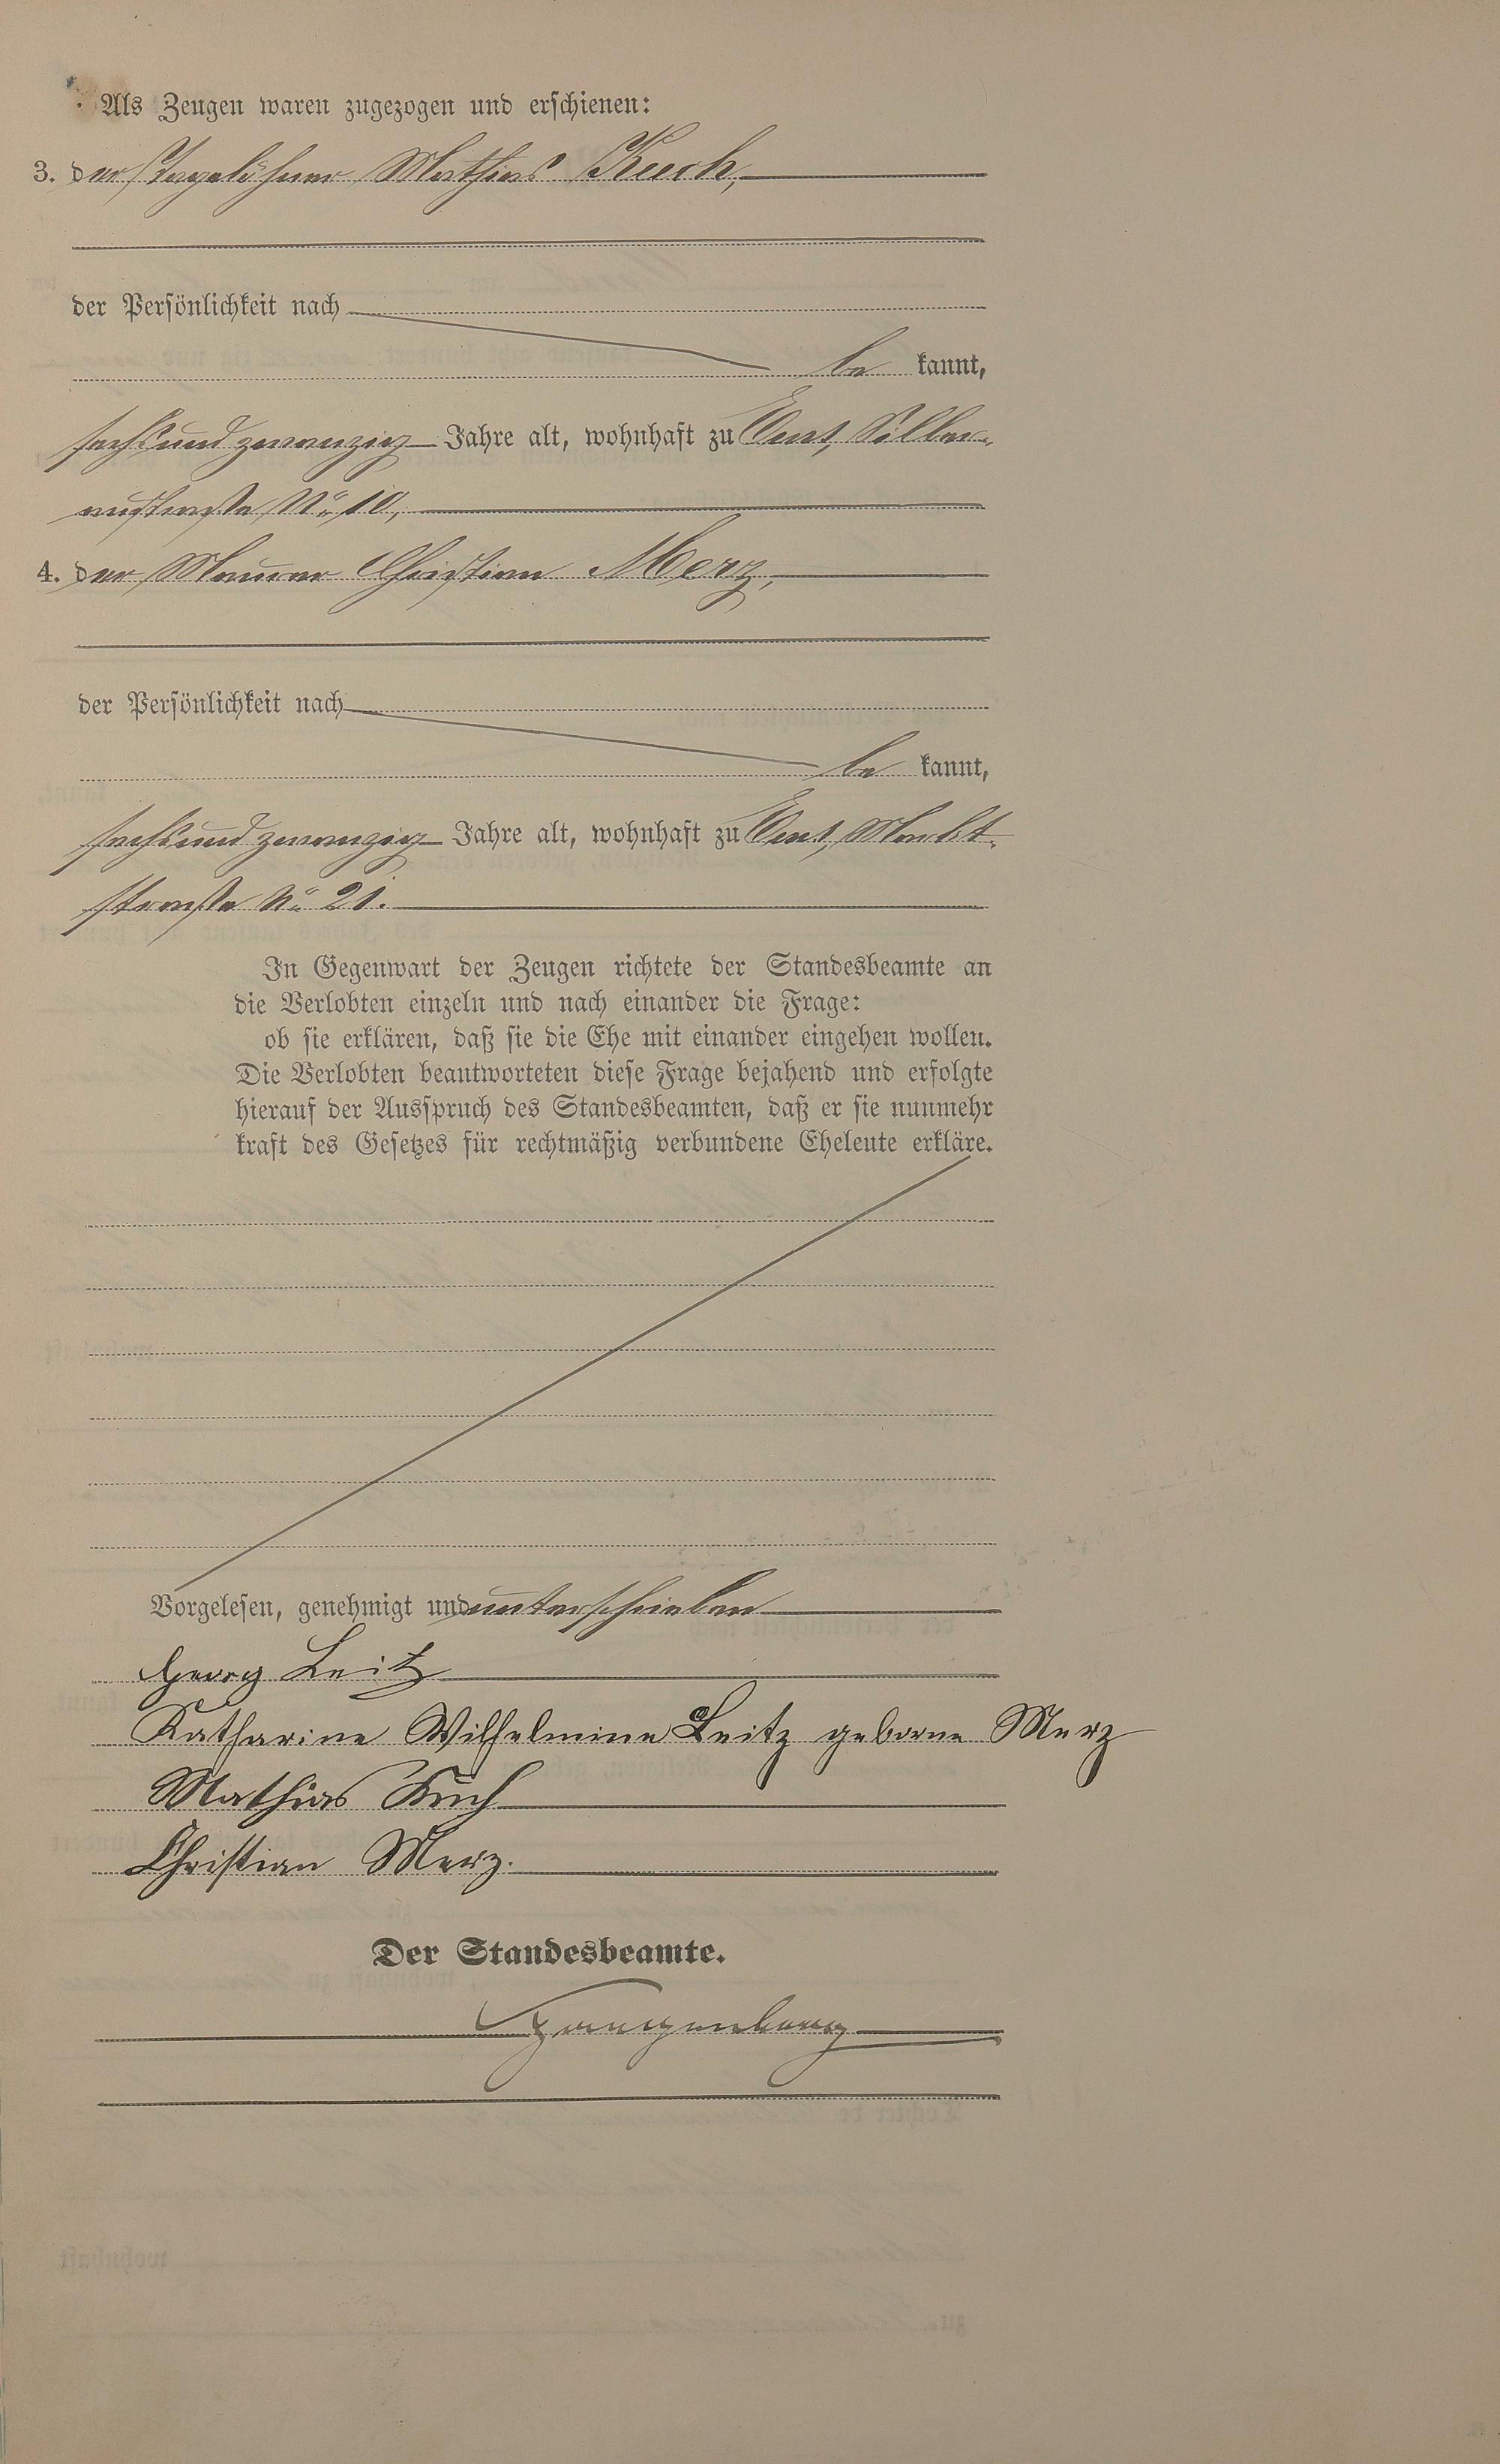 Als Zeugen waren zugezogen und erschienen:
3. der Tagelöhner Mathias Kuch,
der Persönlichkeit nach
be kannt,
sechsundzwanzig Jahre alt, wohnhaft zu Ems, Silber-
austraße No 10,
4. der Maurer Christian Merz,
der Persönlichkeit nach
be kannt,
sechsundzwanzig Jahre alt, wohnhaft zu Ems, Markt-
straße No 21.
In Gegenwart der Zeugen richtete der Standesbeamte an
die Verlobten einzeln und nach einander die Frage:
ob sie erklären, daß sie die Ehe mit einander eingehen wollen.
Die Verlobten beantworteten diese Frage bejahend und erfolgte
hierauf der Ausspruch des Standesbeamten, daß er sie nunmehr
kraft des Gesetzes für rechtmäßig verbundene Eheleute erkläre.
Vorgelesen, genehmigt und unterschrieben
Georg Leitz
Katharine Wilhelmine Leitz geborne Merz
Mathias Kuch
Christian Merz.
Der Standesbeamte.